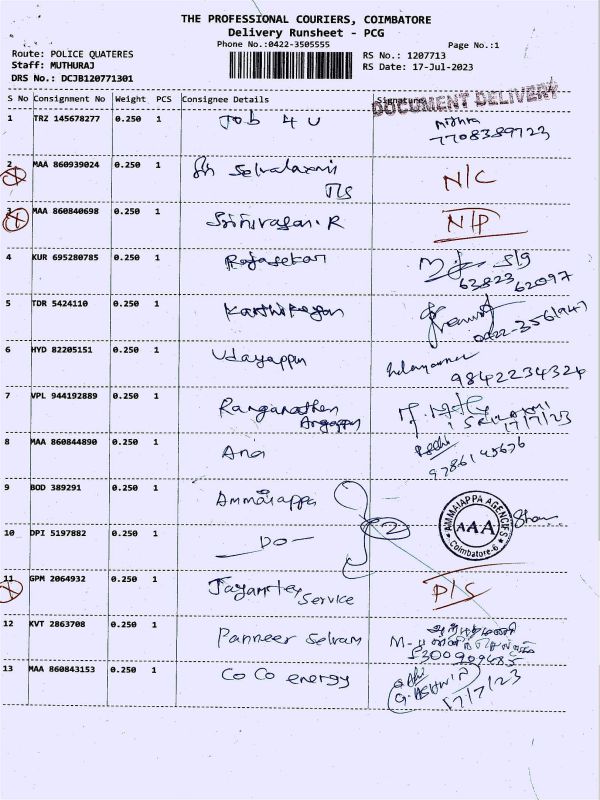 THE PROFESSIONAL COURIERS, COIMBATORE
Delivery Runsheet - PCG
Phone No.:0422-3505555
Page No.:1
Route: POLICE QUATERES
Staff: MUTHURAJ
DRS No.: DCJB120771301
RS No.: 1207713
RS Date: 17-Jul-2023
S No Consignment No Weight PCS Consignee Details Signature
DOCUMENT DELIVERY
1 TRZ 145678277 0.250 1 Job 4 U Mithra
7708389723
2 MAA 860939024 0.250 1 Sri Selvalaxmi N/C
Tls
3 MAA 860840698 0.250 1 Srinivasan.R N/P
4 KUR 695280785 0.250 1 Rajasekar S/g
63823 62097
5 TDR 5424110 0.250 1 Karthikeyan
0422-3561947
6 HYD 82205151 0.250 1 Udayappan
9842234324
7 VPL 944192889 0.250 1 Ranganathan
17/7/23
8 MAA 860844890 0.250 1
9786145676
9 BOD 389291 0.250 1 Ammaiappa
2
AMMAIAPPA AGENCIES
AAA
Coimbatore-6
10 DPI 5197882 0.250 1 — DO —
11 GPM 2064932 0.250 1 Service P/S
12 KVT 2863708 0.250 1 Panneer Selvam
5300909485
13 MAA 860843153 0.250 1 CO CO energy
G. ASHWIN
17/7/23